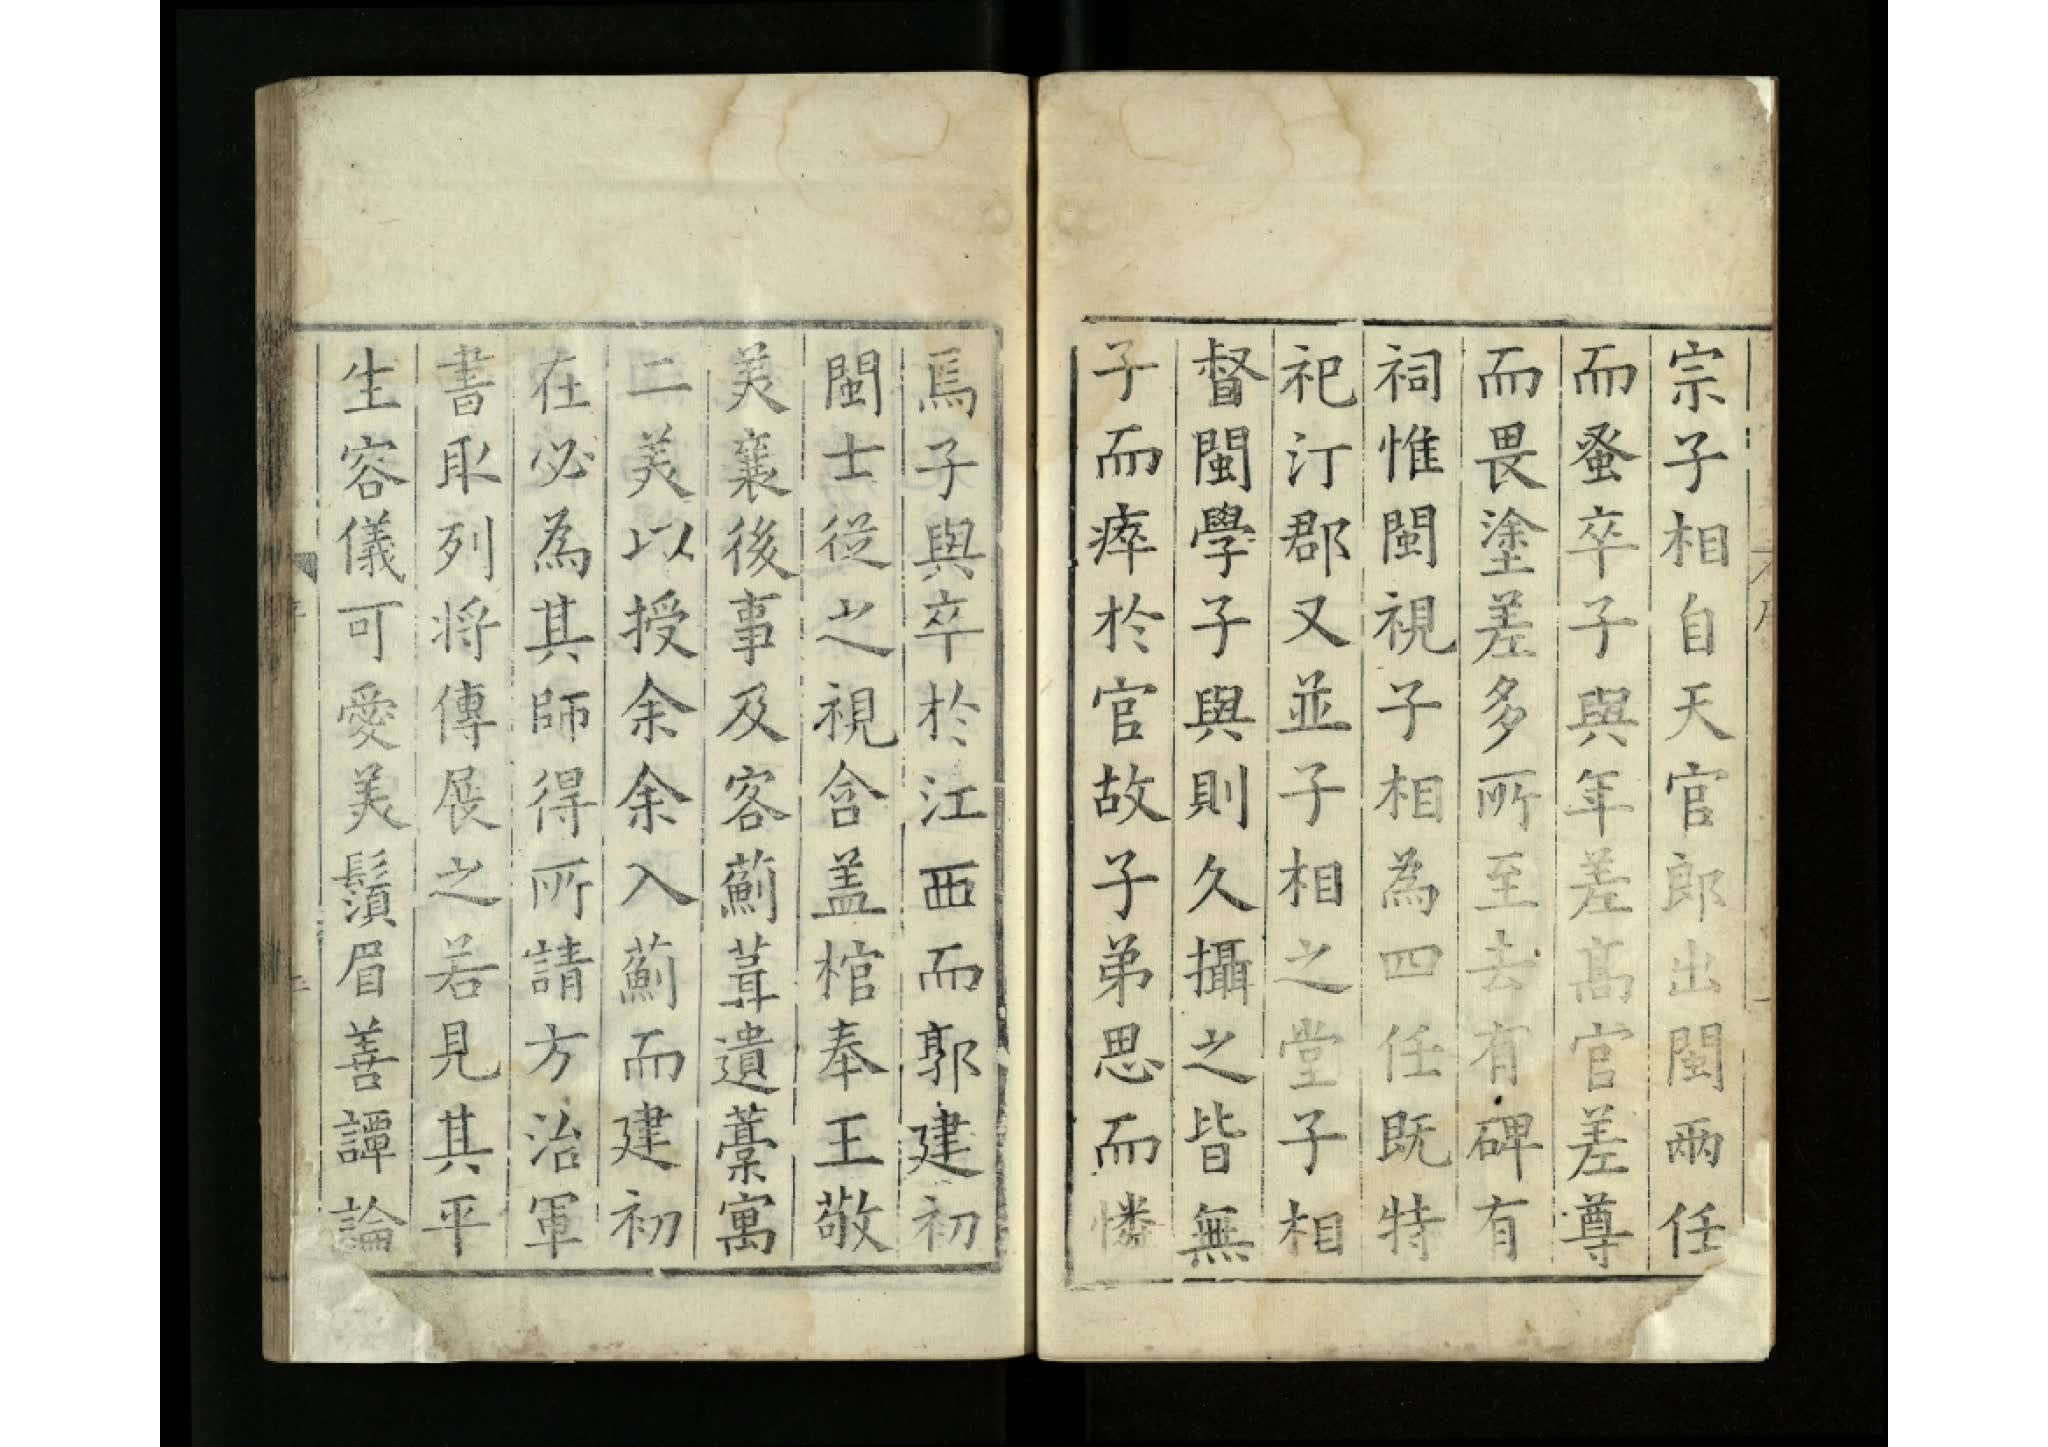 宗子相自天官郎出閩兩任
而蚤卒子與年差髙官差尊
而畏塗差多所至去有碑有
祠惟閩視子相為四任既特
祀汀郡又並子相之堂子相
督閩學子與則久攝之皆無
子而瘁於官故子弟思而憐
焉子與卒於江西而郭建初
閩士從之視含盖棺奉王敬
美襄後事及客薊葺遺藁寓
二美以授余余入薊而建初
在必為其師得所請方治軍
書取列將傳展之若見其平
生容儀可愛美鬚眉善譚論